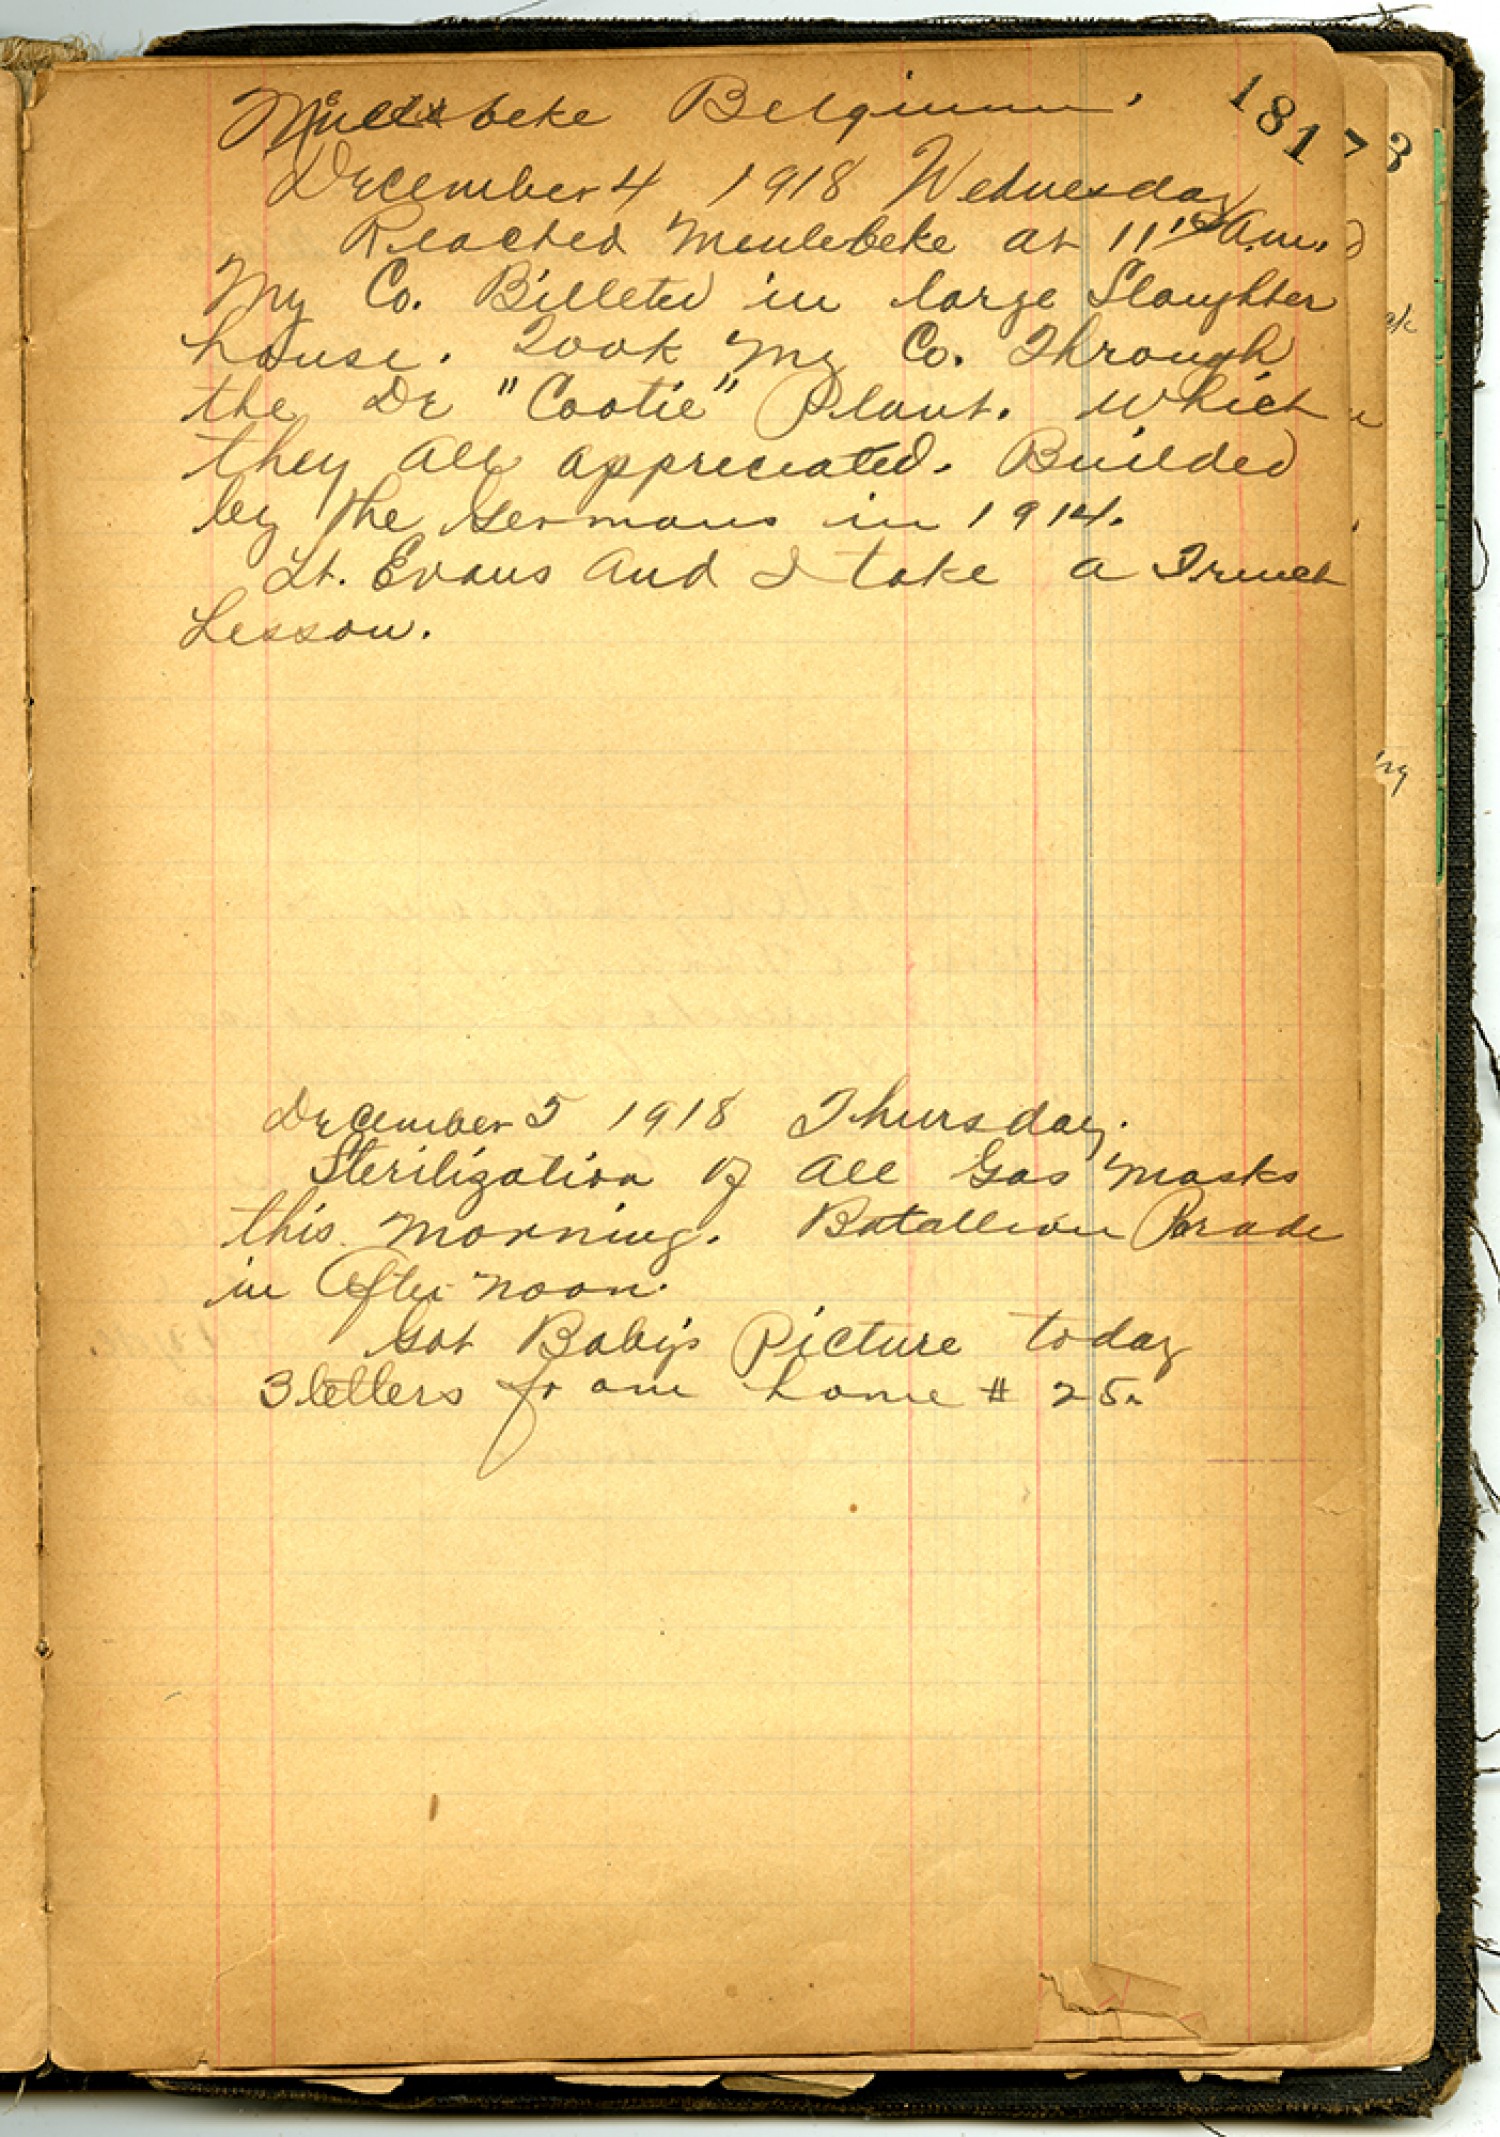 Meulebeke Belgium.
181 7 3
December 4 1918 Wednesday
Reached Meulebeke at 11 15 A.m.
My Co. Billeted in large Slaughter
house. Took my Co. Through
the De "Cootie" Plant. which
they all appreciated. Builded
by the Germans in 1914.
Lt. Evans and I take a French
Lesson.
December 5 1918 Thursday.
Sterilization of all Gas masks
this morning. Batallion Parade
in After noon.
Got Baby's Picture today
3 letters from home # 25.